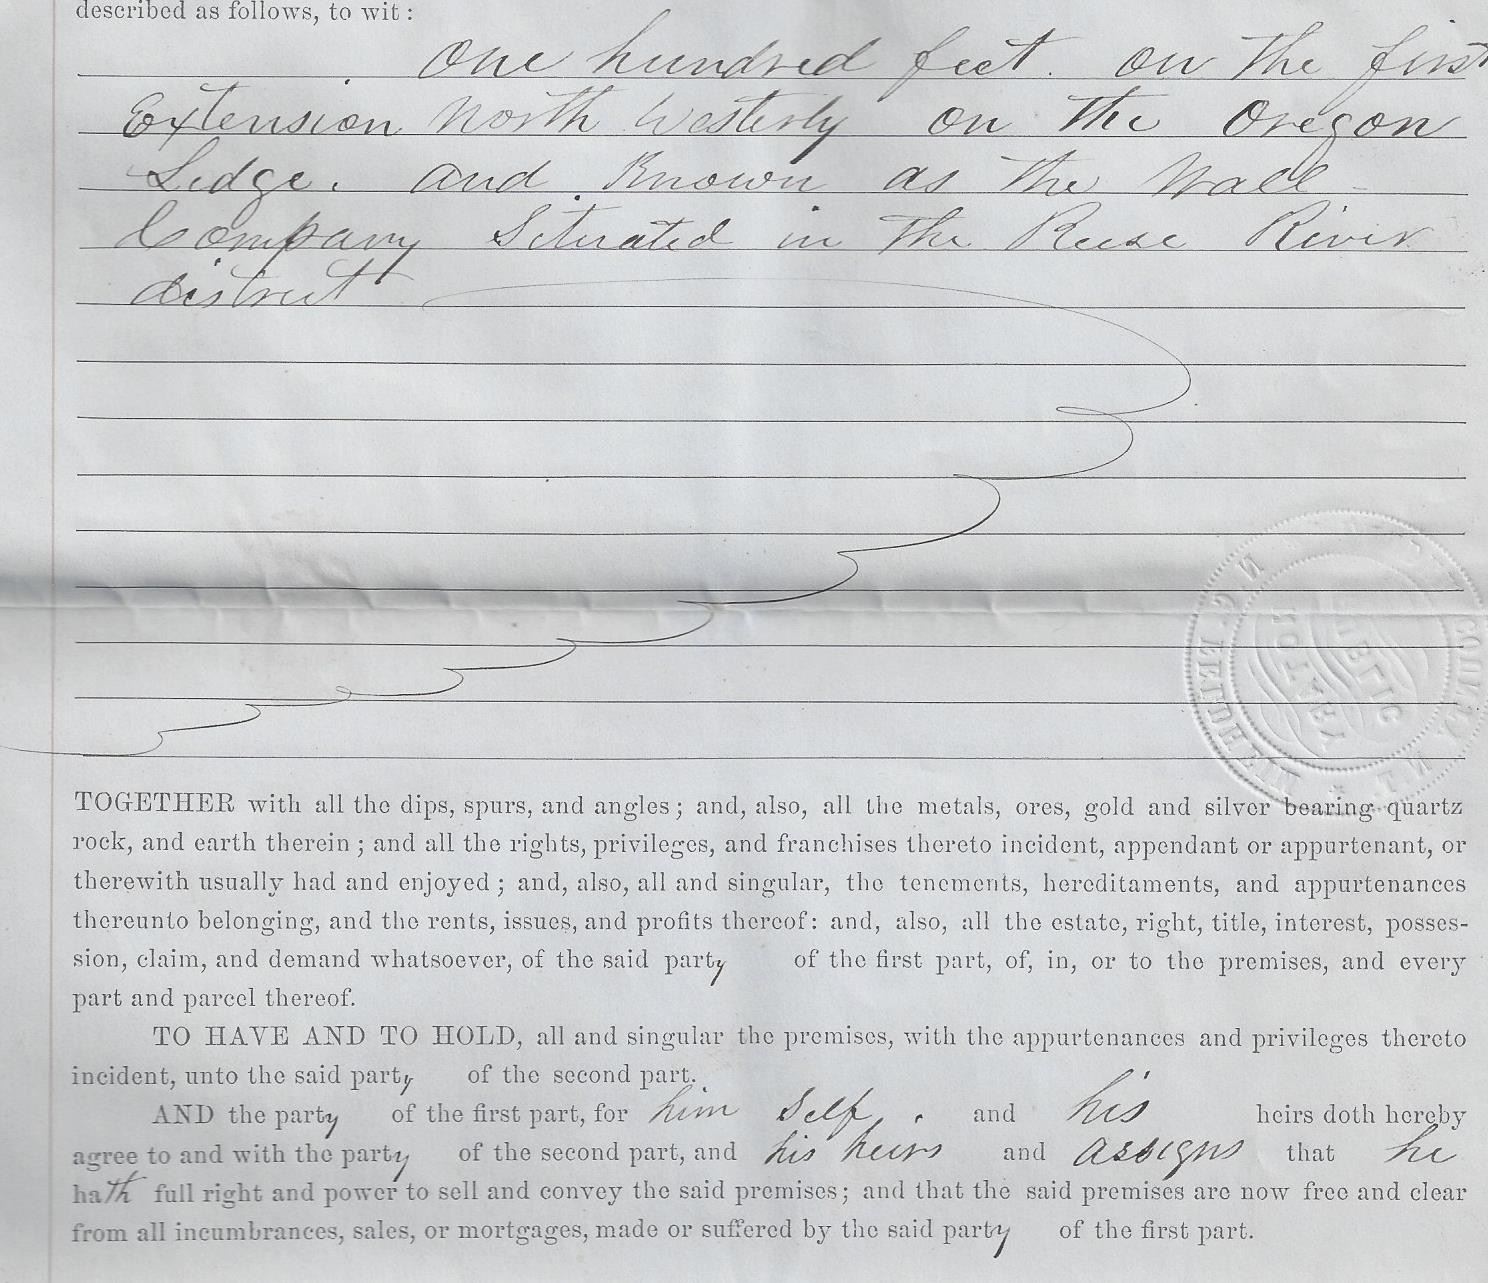 described as follows, to wit:
One hundred feet. on the first
Extension North Westerly on the Oregon
Ledge. and Known as the Wall
Company Situated in the Reese River
district
NOTARY
PUBLIC
TOGETHER with all the dips, spurs, and angles; and, also, all the metals, ores, gold and silver bearing quartz
rock, and earth therein; and all the rights, privileges, and franchises thereto incident, appendant or appurtenant, or
therewith usually had and enjoyed; and, also, all and singular, the tenements, hereditaments, and appurtenances
thereunto belonging, and the rents, issues, and profits thereof: and, also, all the estate, right, title, interest, posses-
sion, claim, and demand whatsoever, of the said party of the first part, of, in, or to the premises, and every
part and parcel thereof.
TO HAVE AND TO HOLD, all and singular the premises, with the appurtenances and privileges thereto
incident, unto the said party of the second part.
AND the party of the first part, for him Self. and his heirs doth hereby
agree to and with the party of the second part, and his heirs and assigns that he
hath full right and power to sell and convey the said premises; and that the said premises are now free and clear
from all incumbrances, sales, or mortgages, made or suffered by the said party of the first part.